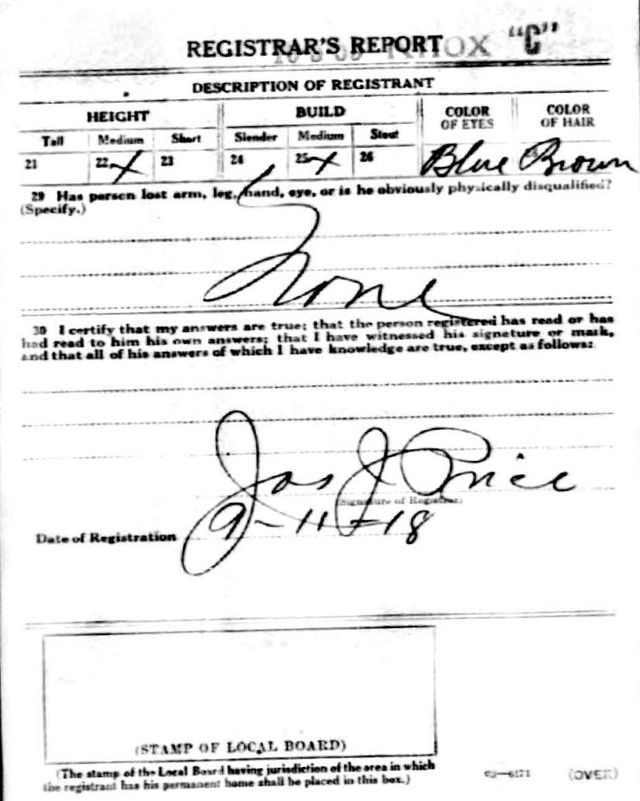 REGISTRAR'S REPORT "C"
DESCRIPTION OF REGISTRANT
HEIGHT BUILD COLOR OF EYES COLOR OF HAIR
Tall Medium Short Slender Medium Stout
21 22 X 23 24 25 X 26 Blue Brown
29 Has person lost arm, leg, hand, eye, or is he obviously physically disqualified?
(Specify.)
None
30 I certify that my answers are true; that the person registered has read or has
had read to him his own answers; that I have witnessed his signature or mark,
and that all of his answers of which I have knowledge are true, except as follows:
Jas J Price
(Signature of Registrar)
Date of Registration 9-11-18
(STAMP OF LOCAL BOARD)
(The stamp of the Local Board having jurisdiction of the area in which
the registrant has his permanent home shall be placed in this box.)
(OVER)